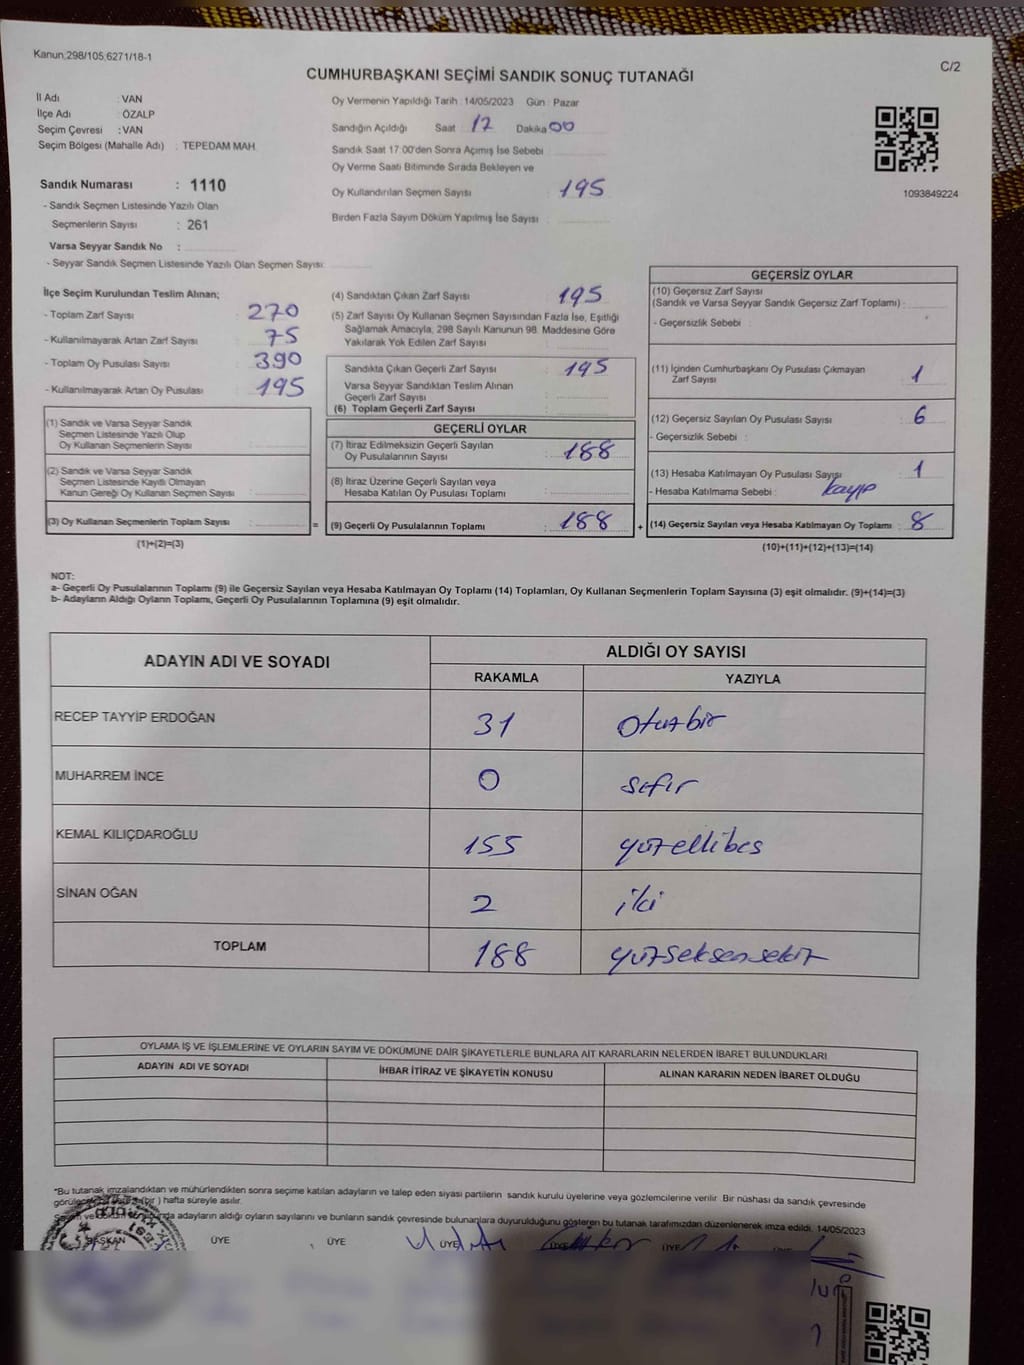 Kanun;298/105,6271/18-1
C/2
CUMHURBAŞKANI SEÇİMİ SANDIK SONUÇ TUTANAĞI
İl Adı : VAN
İlçe Adı : ÖZALP
Seçim Çevresi : VAN
Seçim Bölgesi (Mahalle Adı) : TEPEDAM MAH.
Oy Vermenin Yapıldığı Tarih : 14/05/2023 Gün : Pazar
Sandığın Açıldığı Saat : 17 Dakika 00
Sandık Saat 17:00'den Sonra Açımış İse Sebebi :
Oy Verme Saati Bitiminde Sırada Bekleyen ve
Oy Kullandırılan Seçmen Sayısı : 195
Birden Fazla Sayım Döküm Yapılmış İse Sayısı :
1093849224
Sandık Numarası : 1110
- Sandık Seçmen Listesinde Yazılı Olan
Seçmenlerin Sayısı : 261
Varsa Seyyar Sandık No :
- Seyyar Sandık Seçmen Listesinde Yazılı Olan Seçmen Sayısı:
İlçe Seçim Kurulundan Teslim Alınan;
- Toplam Zarf Sayısı : 270
- Kullanılmayarak Artan Zarf Sayısı : 75
- Toplam Oy Pusulası Sayısı : 390
- Kullanılmayarak Artan Oy Pusulası : 195
(1) Sandık ve Varsa Seyyar Sandık
Seçmen Listesinde Yazılı Olup
Oy Kullanan Seçmenlerin Sayısı :
(2) Sandık ve Varsa Seyyar Sandık
Seçmen Listesinde Kayıtlı Olmayan
Kanun Gereği Oy Kullanan Seçmen Sayısı :
(3) Oy Kullanan Seçmenlerin Toplam Sayısı : =
(1)+(2)=(3)
(4) Sandıktan Çıkan Zarf Sayısı : 195
(5) Zarf Sayısı Oy Kullanan Seçmen Sayısından Fazla İse, Eşitliği
Sağlamak Amacıyla, 298 Sayılı Kanunun 98. Maddesine Göre
Yakılarak Yok Edilen Zarf Sayısı :
Sandıkta Çıkan Geçerli Zarf Sayısı : 195
Varsa Seyyar Sandıktan Teslim Alınan
Geçerli Zarf Sayısı :
(6) Toplam Geçerli Zarf Sayısı :
GEÇERLİ OYLAR
(7) İtiraz Edilmeksizin Geçerli Sayılan
Oy Pusulalarının Sayısı : 188
(8) İtiraz Üzerine Geçerli Sayılan veya
Hesaba Katılan Oy Pusulası Toplamı :
(9) Geçerli Oy Pusulalarının Toplamı : 188 +
GEÇERSİZ OYLAR
(10) Geçersiz Zarf Sayısı
(Sandık ve Varsa Seyyar Sandık Geçersiz Zarf Toplamı) :
- Geçersizlik Sebebi :
(11) İçinden Cumhurbaşkanı Oy Pusulası Çıkmayan
Zarf Sayısı : 1
(12) Geçersiz Sayılan Oy Pusulası Sayısı : 6
- Geçersizlik Sebebi :
(13) Hesaba Katılmayan Oy Pusulası Sayısı : 1
- Hesaba Katılmama Sebebi : kayıp
(14) Geçersiz Sayılan veya Hesaba Katılmayan Oy Toplamı : 8
(10)+(11)+(12)+(13)=(14)
NOT:
a- Geçerli Oy Pusulalarının Toplamı (9) ile Geçersiz Sayılan veya Hesaba Katılmayan Oy Toplamı (14) Toplamları, Oy Kullanan Seçmenlerin Toplam Sayısına (3) eşit olmalıdır. (9)+(14)=(3)
b- Adayların Aldığı Oyların Toplamı, Geçerli Oy Pusulalarının Toplamına (9) eşit olmalıdır.
ADAYIN ADI VE SOYADI
ALDIĞI OY SAYISI
RAKAMLA YAZIYLA
RECEP TAYYİP ERDOĞAN 31 otuzbir
MUHARREM İNCE 0 sıfır
KEMAL KILIÇDAROĞLU 155 yüzellibeş
SİNAN OĞAN 2 iki
TOPLAM 188 yüzseksensekiz
OYLAMA İŞ VE İŞLEMLERİNE VE OYLARIN SAYIM VE DÖKÜMÜNE DAİR ŞİKAYETLERLE BUNLARA AİT KARARLARIN NELERDEN İBARET BULUNDUKLARI
ADAYIN ADI VE SOYADI İHBAR İTİRAZ VE ŞİKAYETİN KONUSU ALINAN KARARIN NEDEN İBARET OLDUĞU
*Bu tutanak imzalandıktan ve mühürlendikten sonra seçime katılan adayların ve talep eden siyasi partilerin sandık kurulu üyelerine veya gözlemcilerine verilir. Bir nüshası da sandık çevresinde
(bir ) hafta süreyle asılır.
adayların aldığı oyların sayılarını ve bunların sandık çevresinde bulunanlara duyurulduğunu gösteren bu tutanak tarafımızdan düzenlenerek imza edildi. 14/05/2023
BAŞKAN ÜYE ÜYE ÜYE ÜYE ÜYE ÜYE